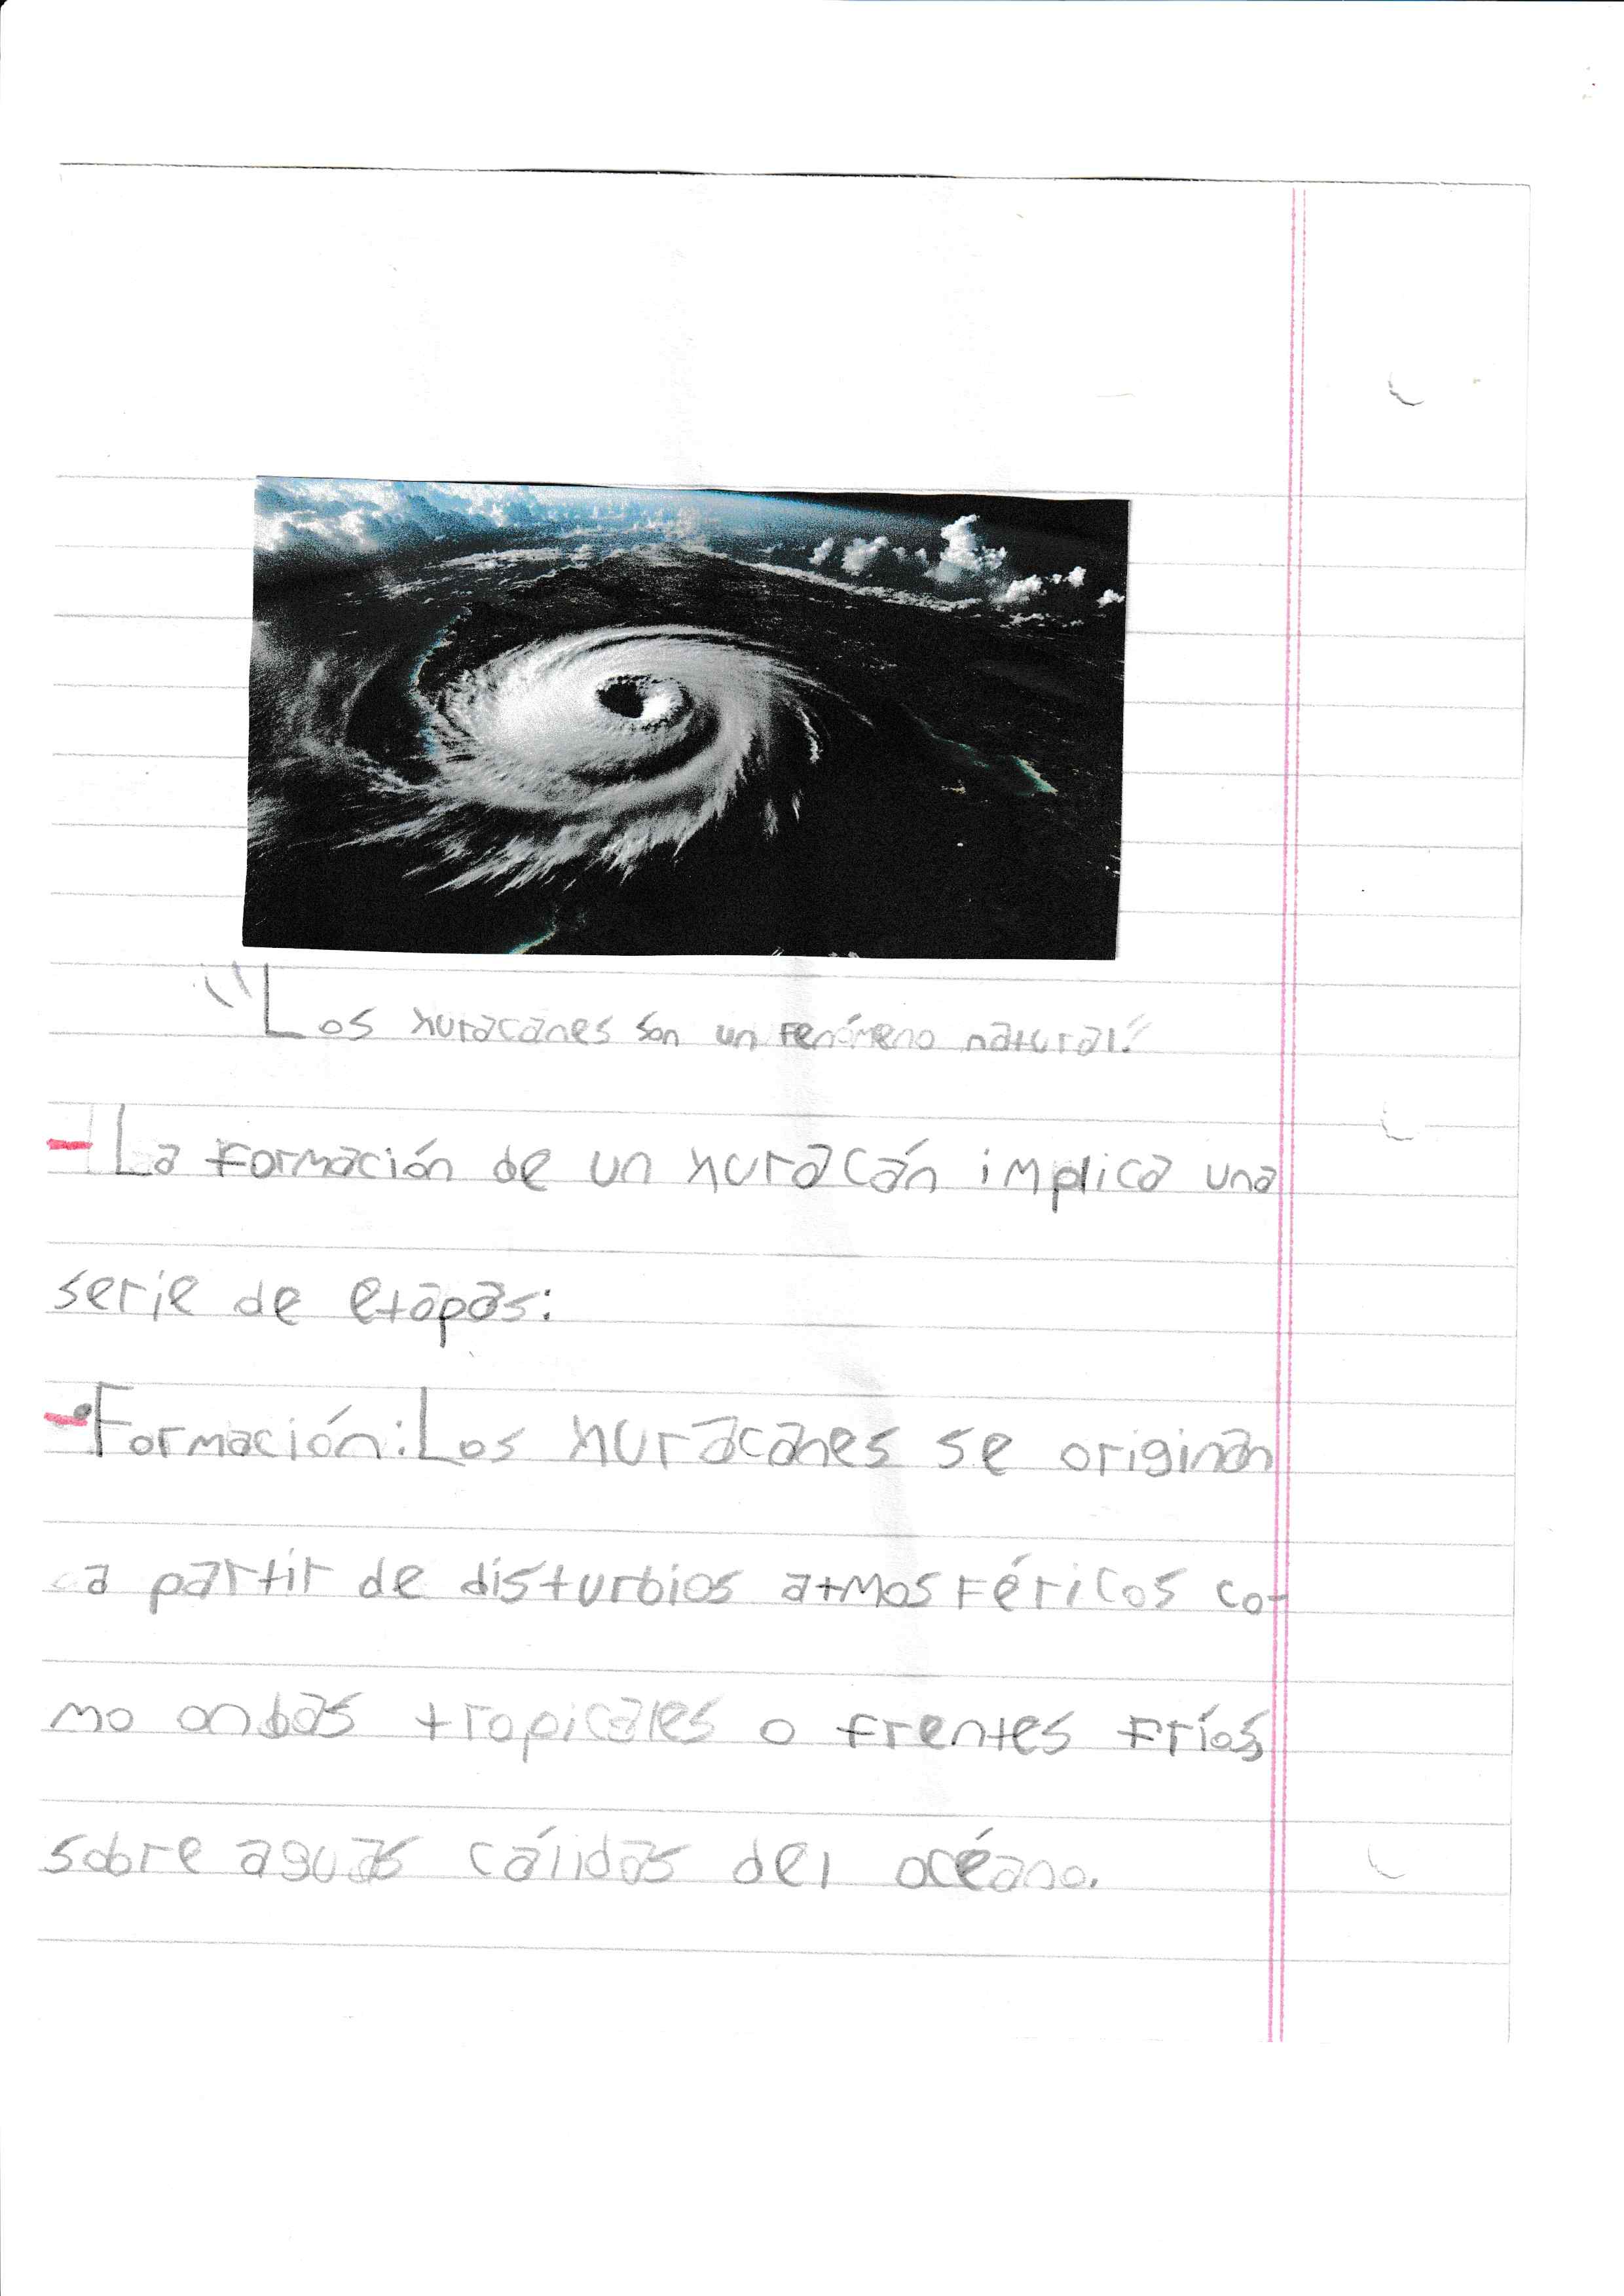 "Los huracanes son un fenómeno natural."
- La formación de un huracán implica una
serie de etapas:
-•Formación: Los huracanes se originan
a partir de disturbios atmosféricos co-
mo ondas tropicales o frentes fríos,
sobre aguas cálidas del océano.